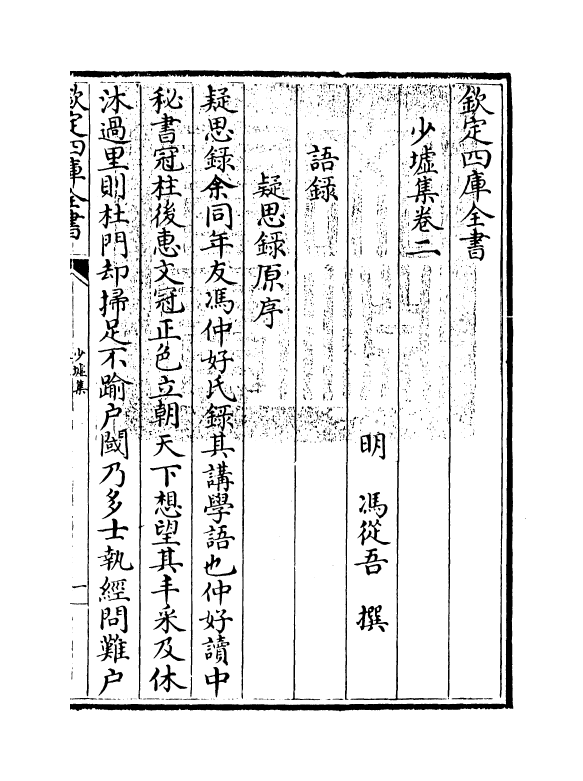 欽定四庫全書
少墟集卷二
明 馮從吾 撰
語録
疑思録原序
疑思録余同年友馮仲好氏録其講學語也仲好讀中
秘書冠柱後惠文冠正色立朝天下想望其丰采及休
沐過里則杜門却掃足不踰户閾乃多士執經問難户
欽定四庫全書
少墟集
一